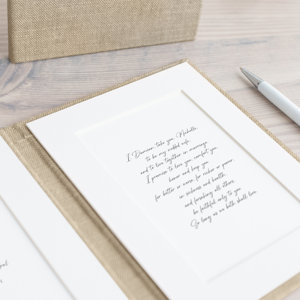 I Dawson, take you, Nichelle,
to be my wedded wife
and to live together in marriage
I promise to love you, comfort you,
honor and keep you
for better or worse, for richer or poorer,
in sickness and health,
and forsaking all others,
be faithful only to you
So long as we both shall live.